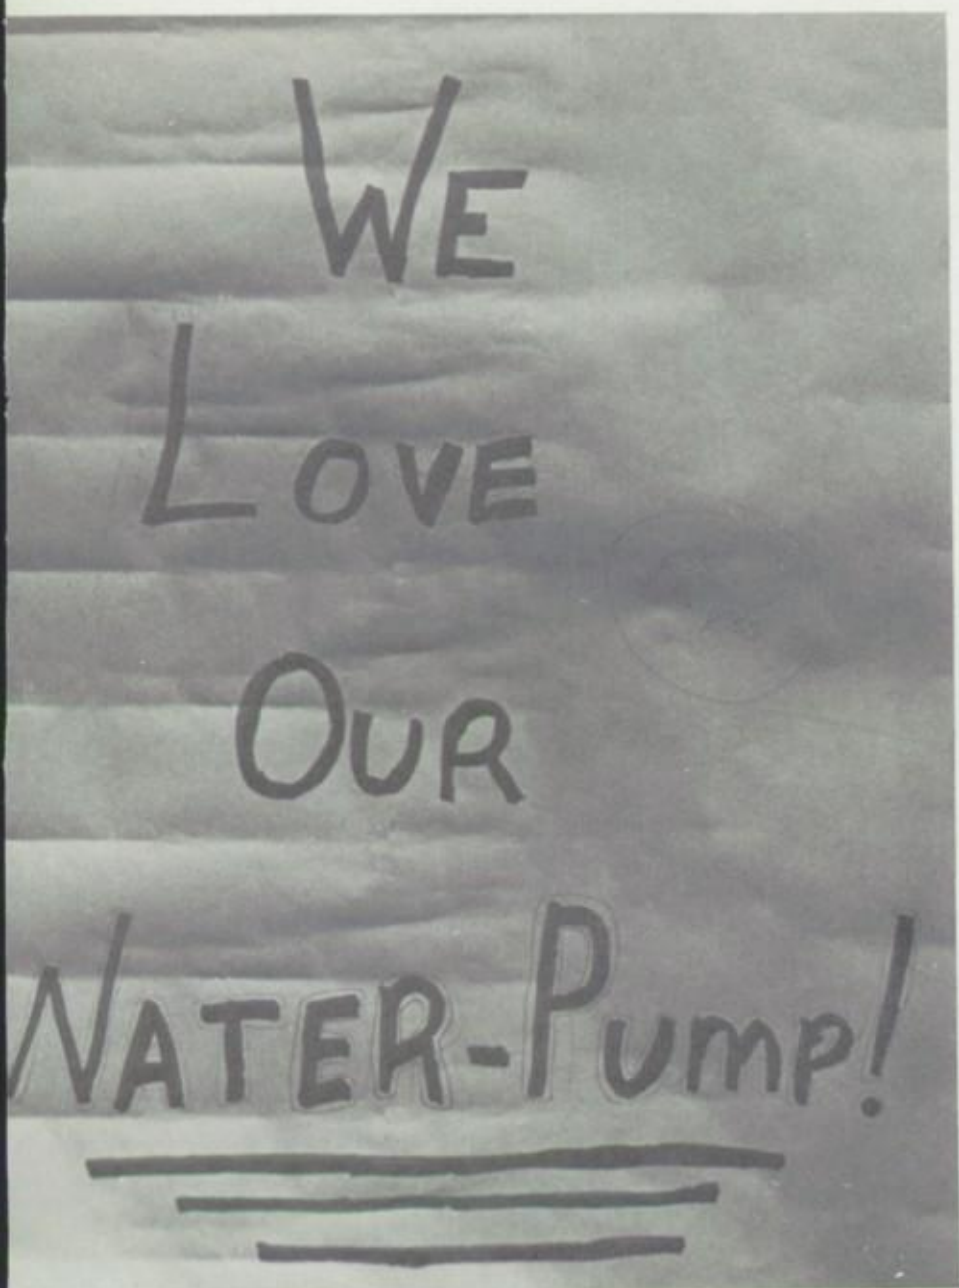 WE
LOVE
OUR
WATER-PUMP!